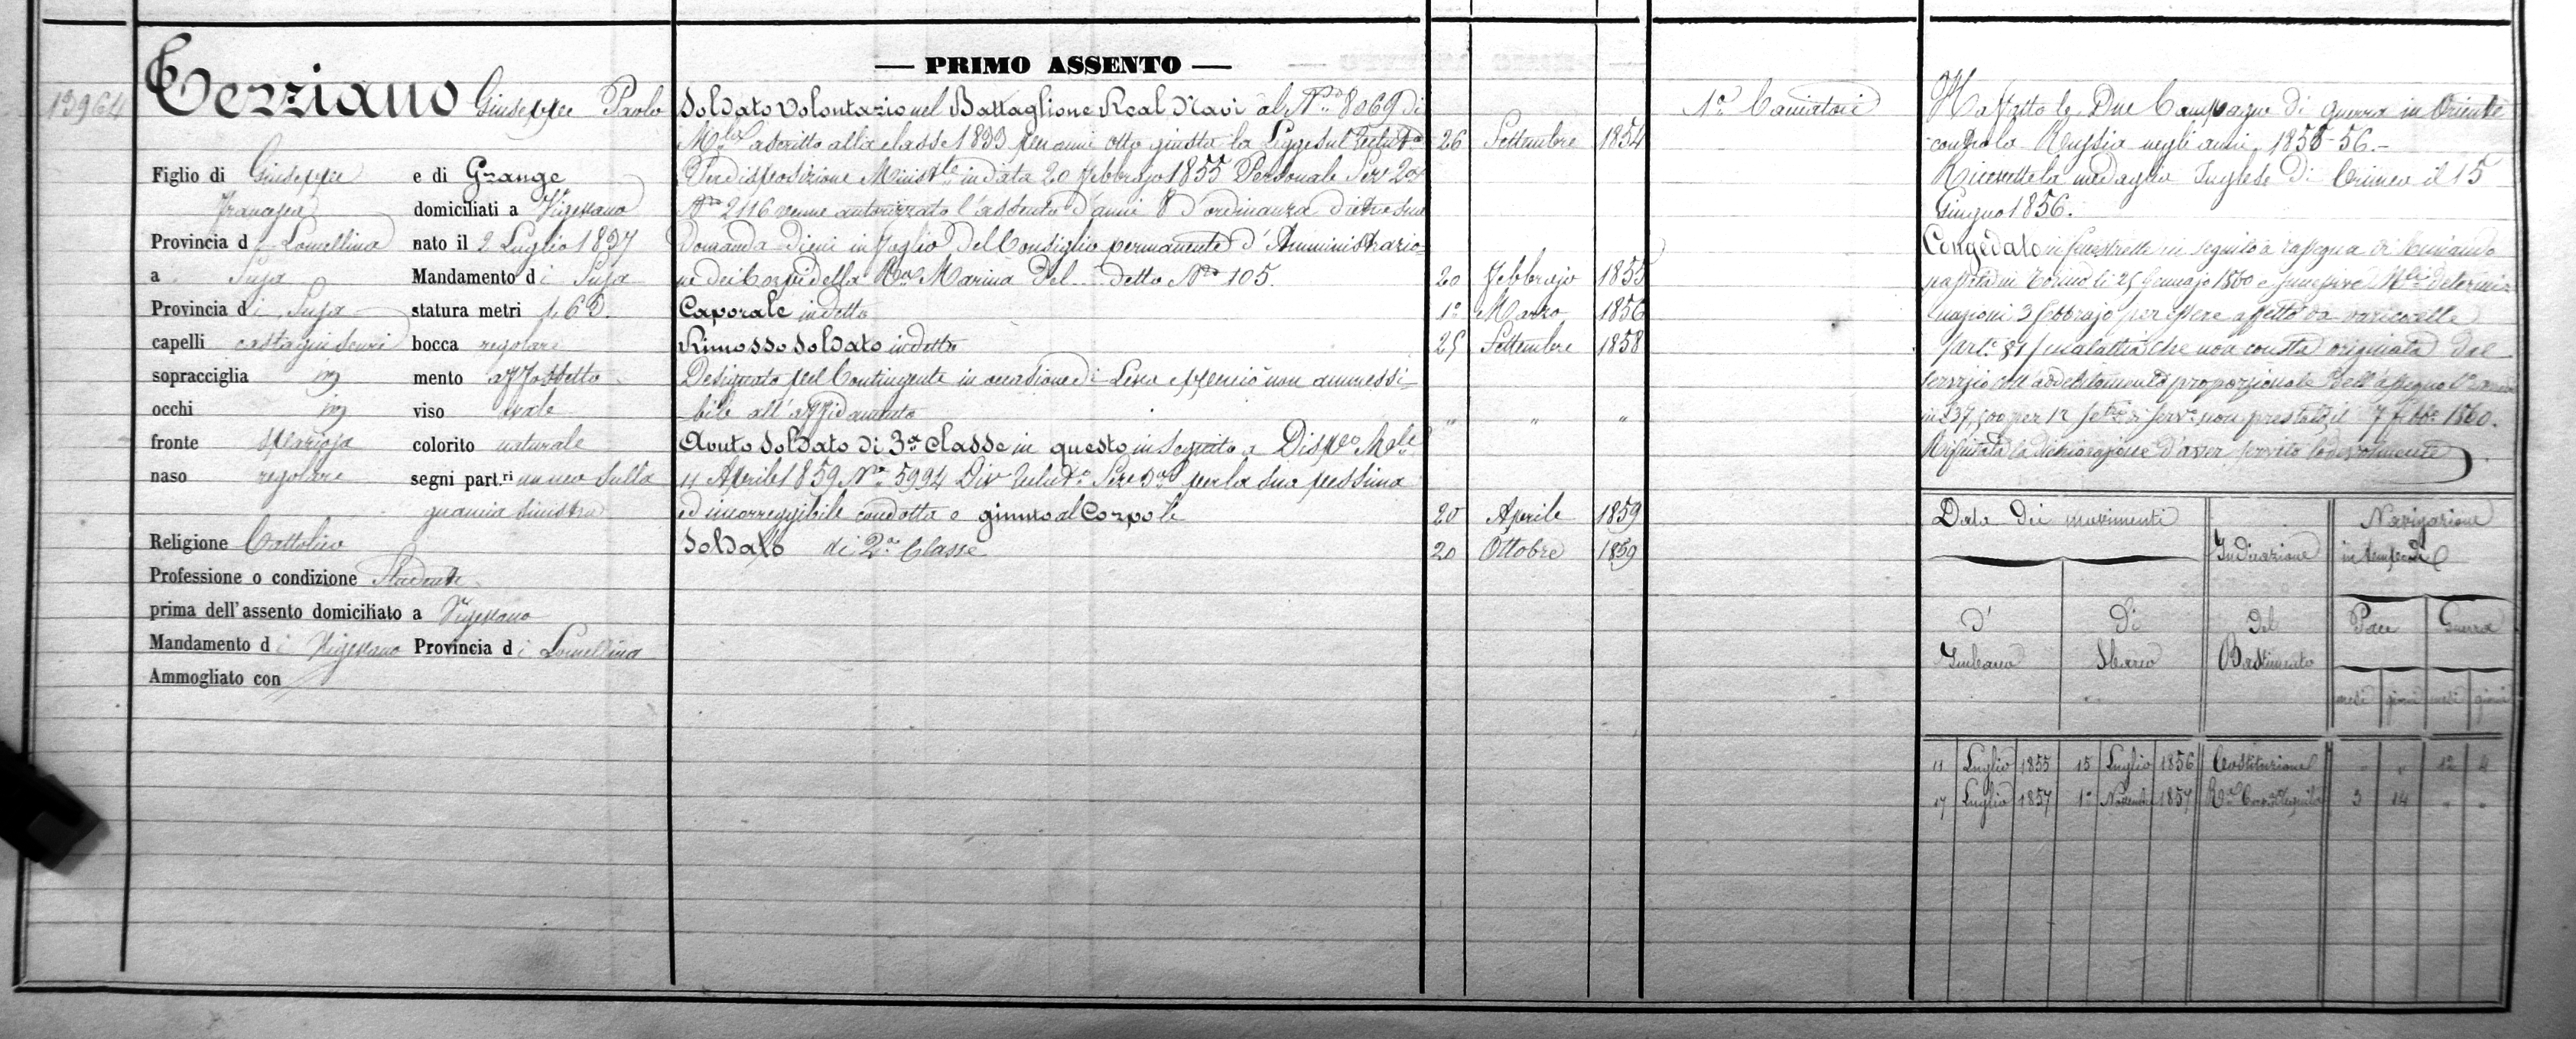 13964
Terziano Giuseppe Paolo
Figlio di Giuseppe e di Grange
Francesca domiciliati a Vigevano
Provincia di Lomellina nato il 2 Luglio 1837
a Susa Mandamento di Susa
Provincia di Susa statura metri 1,63.
capelli castagni scuri bocca regolare
sopracciglia id mento affossetto
occhi id viso ovale
fronte spaziosa colorito naturale
naso regolare segni part.ri un neo sulla
guancia sinistra
Religione Cattolico
Professione o condizione Studente
prima dell'assento domiciliato a Vigevano
Mandamento di Vigevano Provincia di Lomellina
Ammogliato con
— PRIMO ASSENTO —
Soldato volontario nel Battaglione Real Navi al N.ro 8069 di
M.la ascritto alla classe 1833 per anni otto giusta la Legge sul Reclut.to 26 Settembre 1854
Per disposizione Minist.le in data 20 Febbrajo 1855 Personale Sez.e 2a
N.ro 2116 venne autorizzato l'assento d'anni 8 d'ordinanza dietro sua
Domanda Dieni in foglio Del Consiglio permanente d'Amministrazio-
ne dei Corpi della R.a Marina Del detto N.ro 105. 20 Febbrajo 1855
Caporale in detto 1o Marzo 1856
Rimosso soldato in detto 25 Settembre 1858
Designato pel Contingente in occasione di Leva e perciò non ammessi-
bile all'affidamento " " "
Avuto soldato di 3a classe in questo in seguito a Disp.e M.le
11 Aprile 1859 N.o 5994 Div Reclut.o Sez. 3a per la sua pessima
ed incorreggibile condotta e giunto al Corpo le 20 Aprile 1859
Soldato di 2a Classe 20 Ottobre 1859
1o Cacciatori
Ha fatto le Due Campagne di guerra in Oriente
contro la Russia negli anni 1855-56.-
Ricevette la medaglia Inglese di Crimea il 15
Giugno 1856.
Congedato in Fenestrelle in seguito a rassegna di rimando
passata in Torino li 25 Gennajo 1860 e successive M.li determi-
nazioni 3 febbrajo per essere affetto da varicocelle
(art. 81) malattia che non consta originata dal
servizio coll'addebitamento proporzionale dell'assegno
in £37,500 per 12 serv.o non prestato il 7 febb.o 1860.
Rifiutata la dichiarazione d'aver servito lodevolmente
Data dei movimenti
Indicazione
del
Bastimento
Navigazione
in tempo di
D'
Imbarco
Di
Sbarco
Pace Guerra
mesi giorni mesi giorni
11 Luglio 1855 15 Luglio 1856 Costituzione " " 12 4
17 Luglio 1857 1o Novembre 1857 3 14 " "